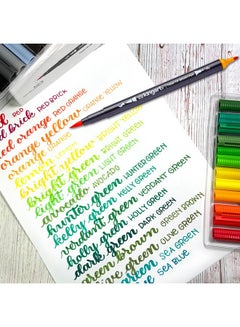 red RED
red brick RED BRICK
red orange RED ORANGE
orange yellow ORANGE YELLOW
orange
lemon
bright yellow BRIGHT YELLOW
bright green BRIGHT GREEN
light green LIGHT GREEN
avocado AVOCADO
hunter green HUNTER GREEN
kelly green KELLY GREEN
verdant green VERDANT GREEN
holly green HOLLY GREEN
dark green DARK GREEN
green brown GREEN BROWN
olive green OLIVE GREEN
green SEA GREEN
blue SEA BLUE